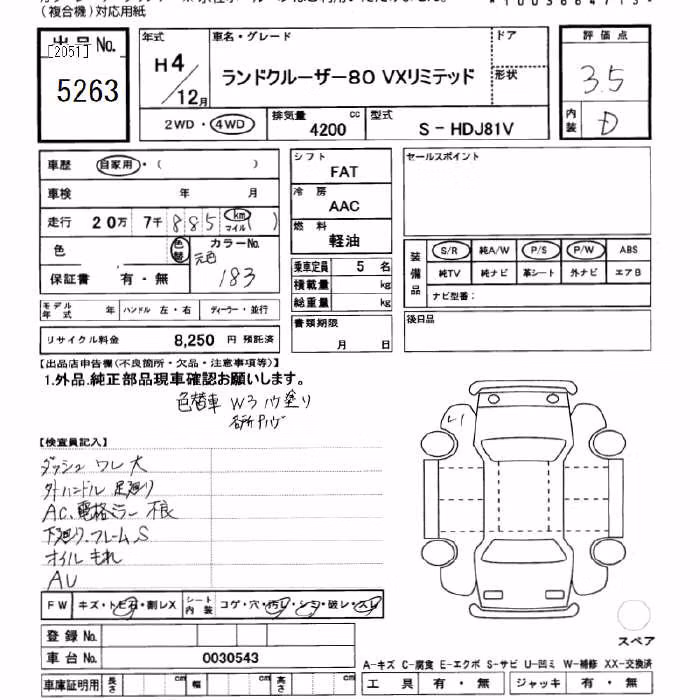 (複合機)対応用紙
出品No.
[2051]
5263
年式
H4/12月
車名・グレード
ランドクルーザー80 VXリミテッド
ドア
形状
2WD・4WD
排気量
4200 cc
型式
S-HDJ81V
評価点
3.5
内装
D
車歴 自家用・( )
車検 年 月
走行 20万 7千 885 km マイル ( )
色 色替 カラーNo.
元色 183
保証書 有・無
シフト
FAT
冷房
AAC
燃料
軽油
乗車定員 5名
積載量 kg
総重量 kg
セールスポイント
装備品
S/R 純A/W P/S P/W ABS
純TV 純ナビ 革シート 外ナビ エアB
ナビ型番:
モデル年式 年 ハンドル 左・右 ディーラー・並行
リサイクル料金 8,250 円 預託済
書類期限
月 日
後日品
【出品店申告欄(不良箇所・欠品・注意事項等)】
1.外品.純正部品現車確認お願いします。
色替車 W3
【検査員記入】
ダッシュ ワレ大
外ハンドル 足廻り
AC、電格ミラー 不良
下廻り、フレームS
オイルもれ
AU
FW キズ・トビ石・割レX
シート内装 コゲ・穴・汚レ・シミ・破レ・スレ
登録No.
車台No. 0030543
車庫証明用 長さ cm 幅 cm 高さ cm
スペア
A-キズ C-腐食 E-エクボ S-サビ U-凹ミ W-補修 XX-交換済
工具 有・無 ジャッキ 有・無